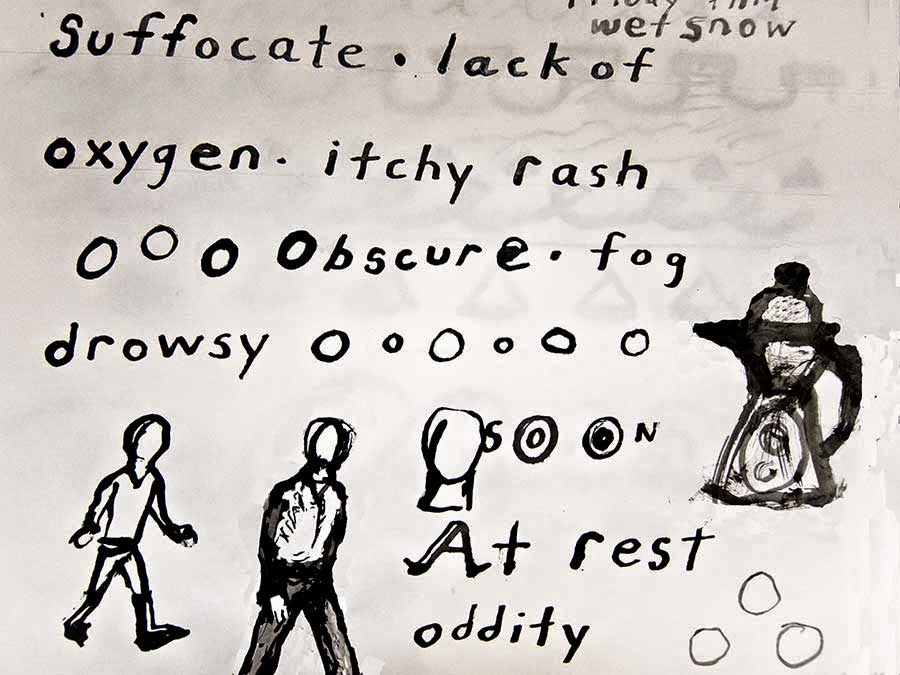 wet snow
Suffocate. lack of
oxygen. itchy rash
Obscure. fog
drowsy
SOON
At rest
oddity